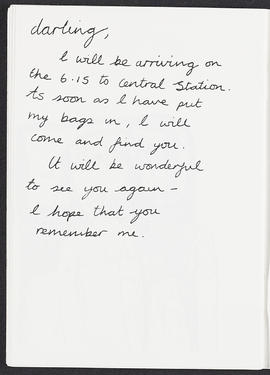 darling,
I will be arriving on
the 6.15 to Central Station.
As soon as I have put
my bags in, I will
come and find you.
It will be wonderful
to see you again –
I hope that you
remember me.